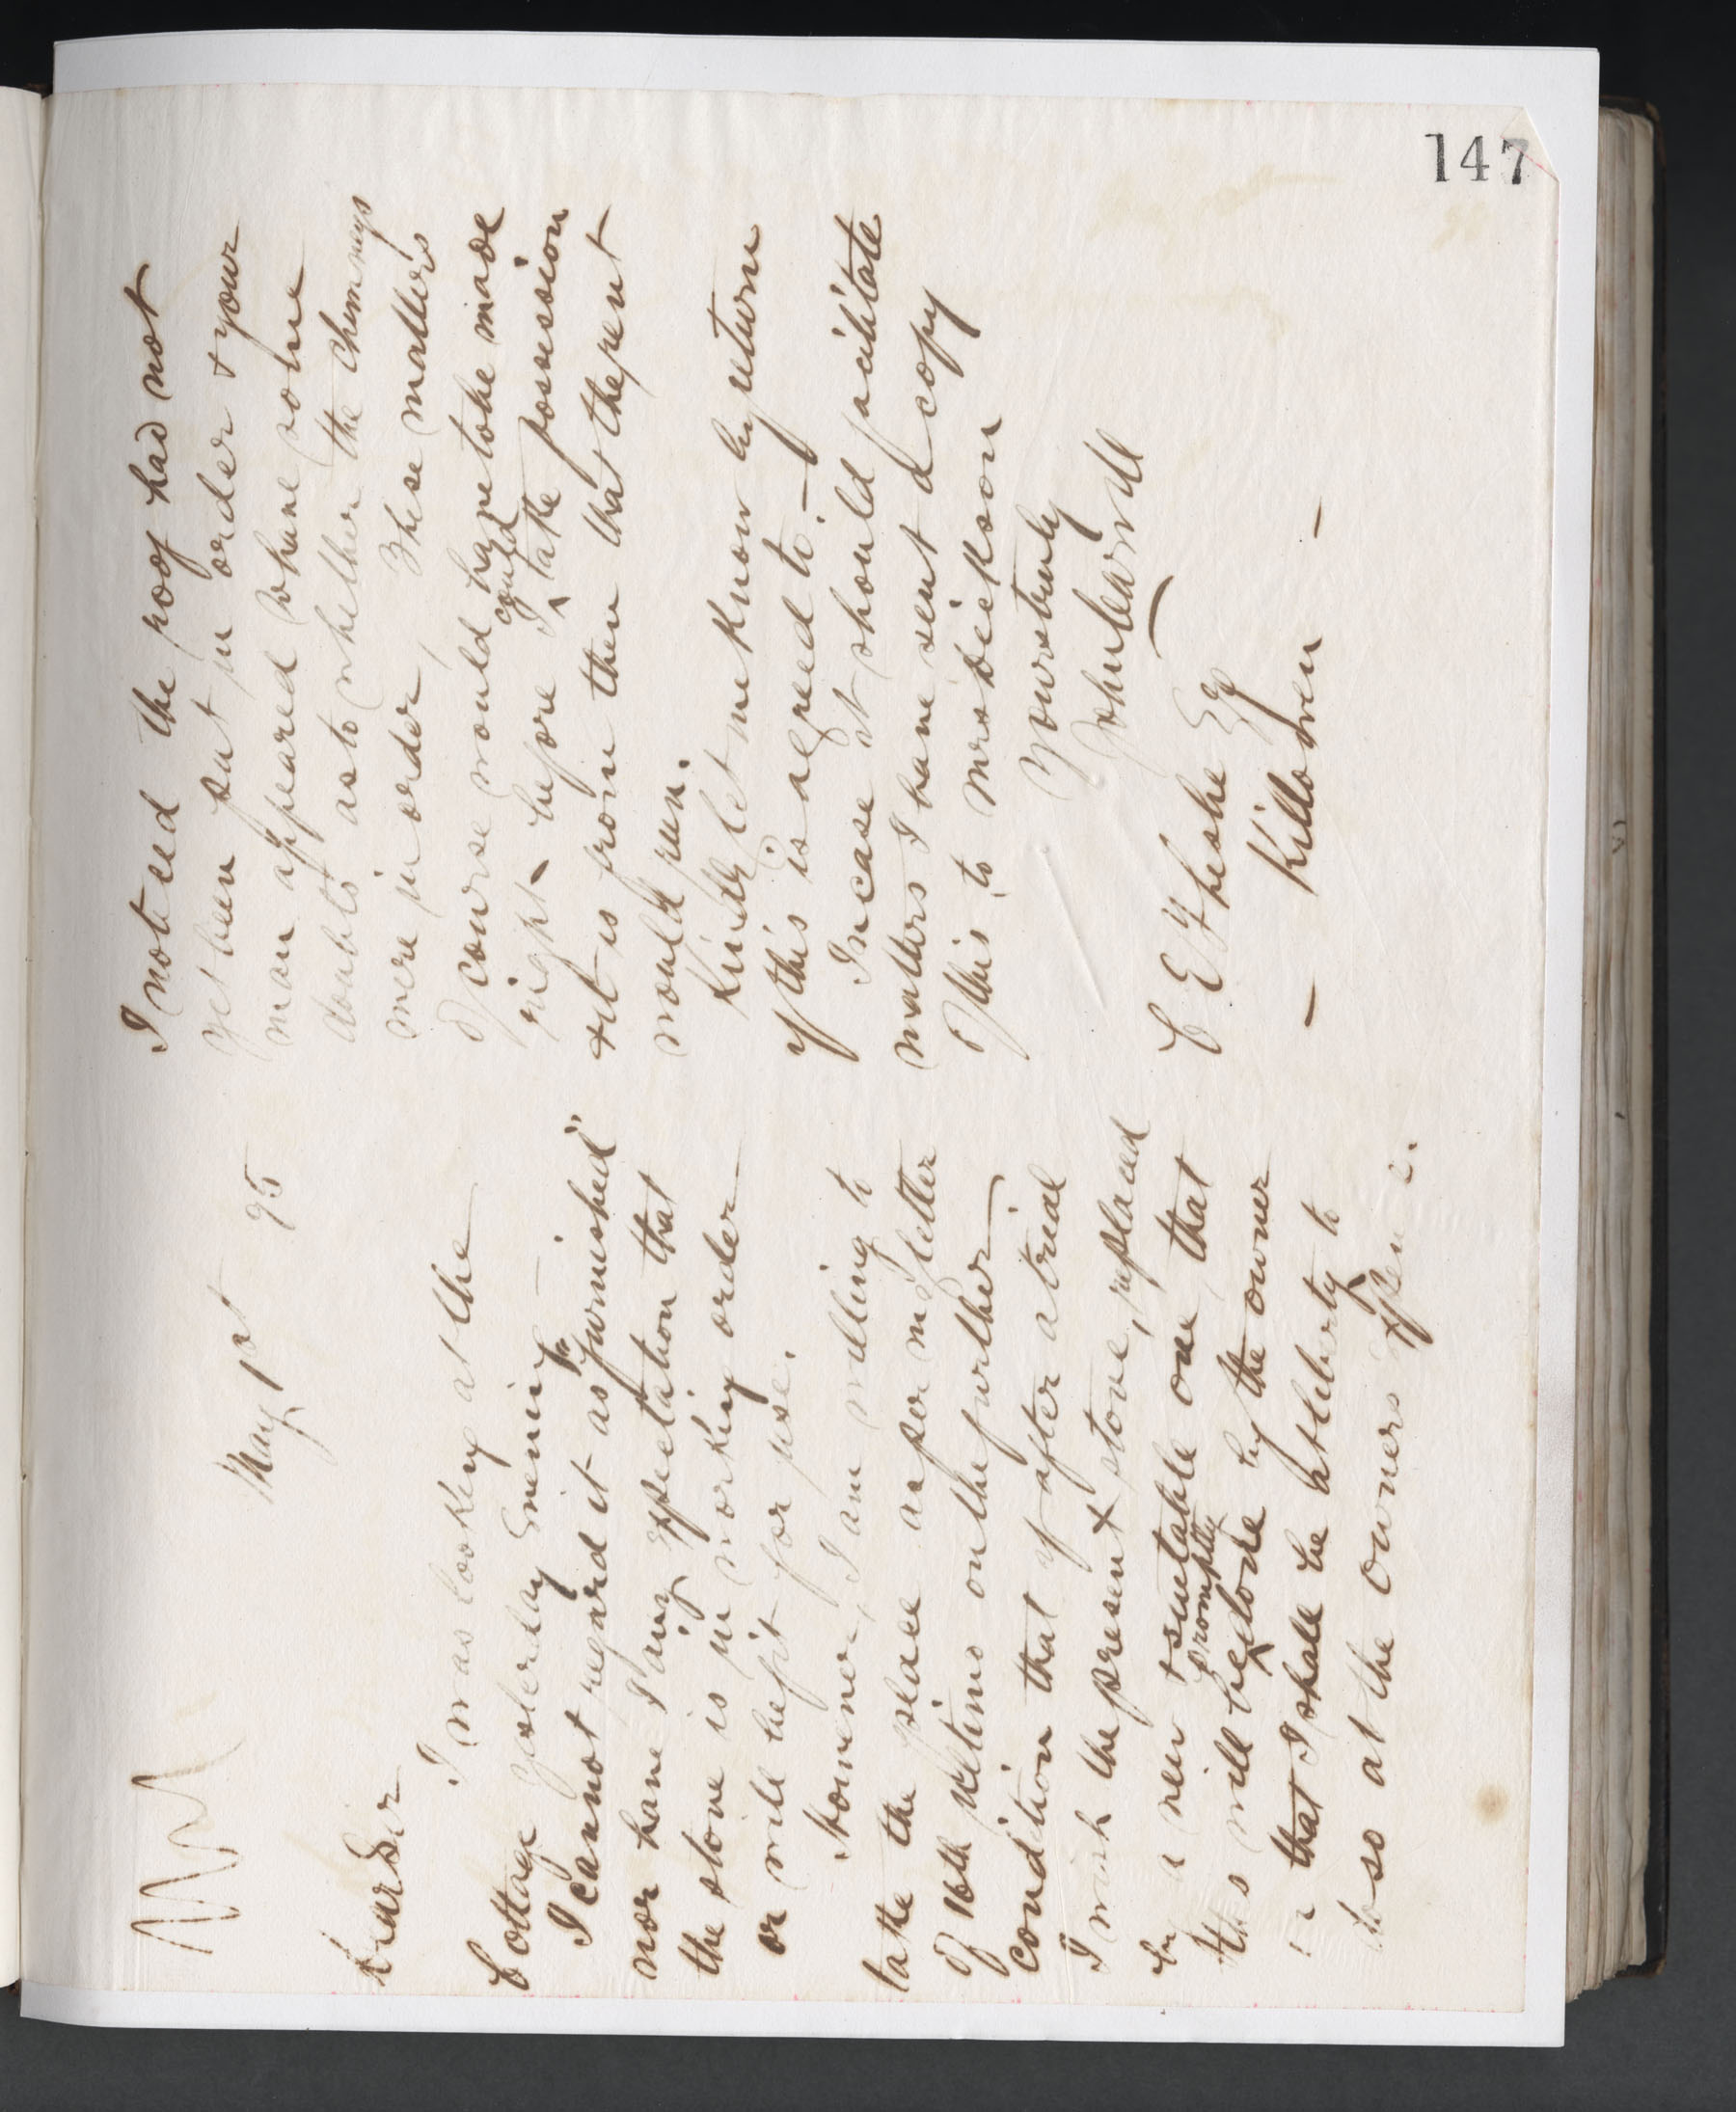 147
May 1st 95
Dear Sir
I was looking at the
Cottage yesterday Evening —
I cannot regard it as "furnished"
nor have I any expectation that
the stove is in working order
or will be fit for use.
However, I am willing to
take the place as per my letter
of 16th ultimo on the further
condition that if after a trial
I wish the present stove, replaced
by a new & suitable one, that
this will be promptly done by the owner
that I shall be at liberty to
do so at the owners
I noticed the roof had not
yet been put in order & your
man appeared to have some
doubts as to whether the chimneys
were in order, These matters
of course would have to be made
right before I could take possession
& it is from then that the rent
would run.
Kindly let me know by return
if this is agreed to. —
In case it should facilitate
matters I have sent a copy
of this to Mrs Dickson
Yours truly
John
C E
— —